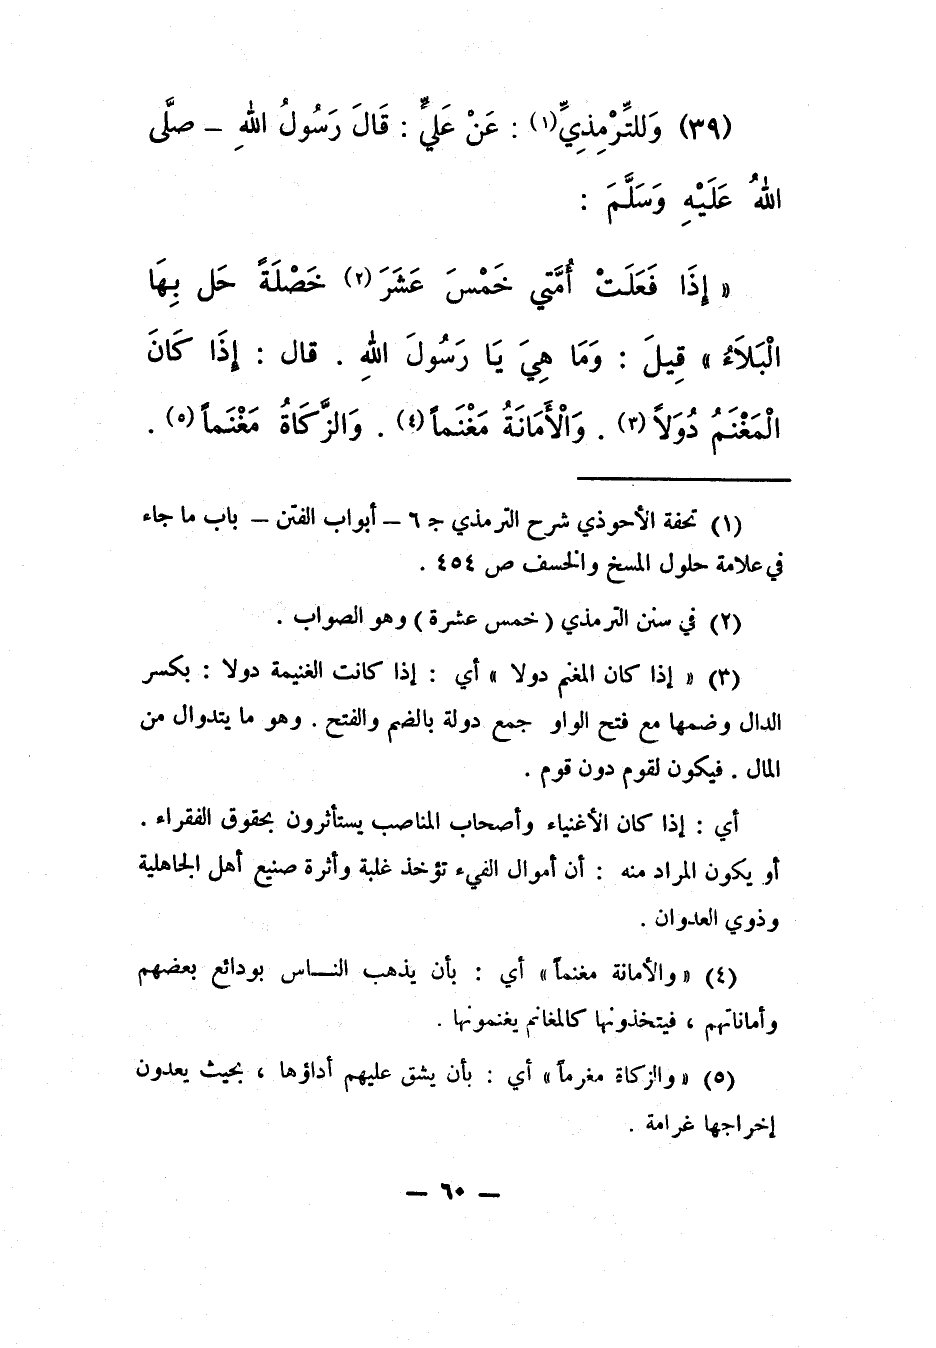 (٣٩) وَلِلتِّرْمِذِيِّ(١) : عَنْ عَلِيٍّ : قَالَ رَسُولُ اللهِ – صلَّى
اللهُ عَلَيْهِ وَسَلَّمَ :
« إِذَا فَعَلَتْ أُمَّتِي خَمْسَ عَشَرَ(٢) خَصْلَةً حَل بِهَا
الْبَلاَءُ » قِيلَ : وَمَا هِيَ يَا رَسُولَ اللهِ . قال : إِذَا كَانَ
الْمَغْنَمُ دُوَلاً(٣) . وَالْأَمَانَةُ مَغْنَماً(٤) . وَالزَّكَاةُ مَغْنَماً(٥) .
(١) تحفة الأحوذي شرح الترمذي جـ ٦ – أبواب الفتن – باب ما جاء
في علامة حلول المسخ والخسف ص ٤٥٤ .
(٢) في سنن الترمذي ( خمس عشرة ) وهو الصواب .
(٣) « إذا كان المغنم دولا » أي : إذا كانت الغنيمة دولا : بكسر
الدال وضمها مع فتح الواو جمع دولة بالضم والفتح . وهو ما يتدوال من
المال . فيكون لقوم دون قوم .
أي : إذا كان الأغنياء وأصحاب المناصب يستأثرون بحقوق الفقراء .
أو يكون المراد منه : أن أموال الفيء تؤخذ غلبة وأثرة صنيع أهل الجاهلية
وذوي العدوان .
(٤) « والأمانة مغنماً » أي : بأن يذهب النـــاس بودائع بعضهم
وأماناتهم ، فيتخذونها كالمغانم يغنمونها .
(٥) « والزكاة مغرماً » أي : بأن يشق عليهم أداؤها ، بحيث يعدون
إخراجها غرامة .
– ٦٠ –